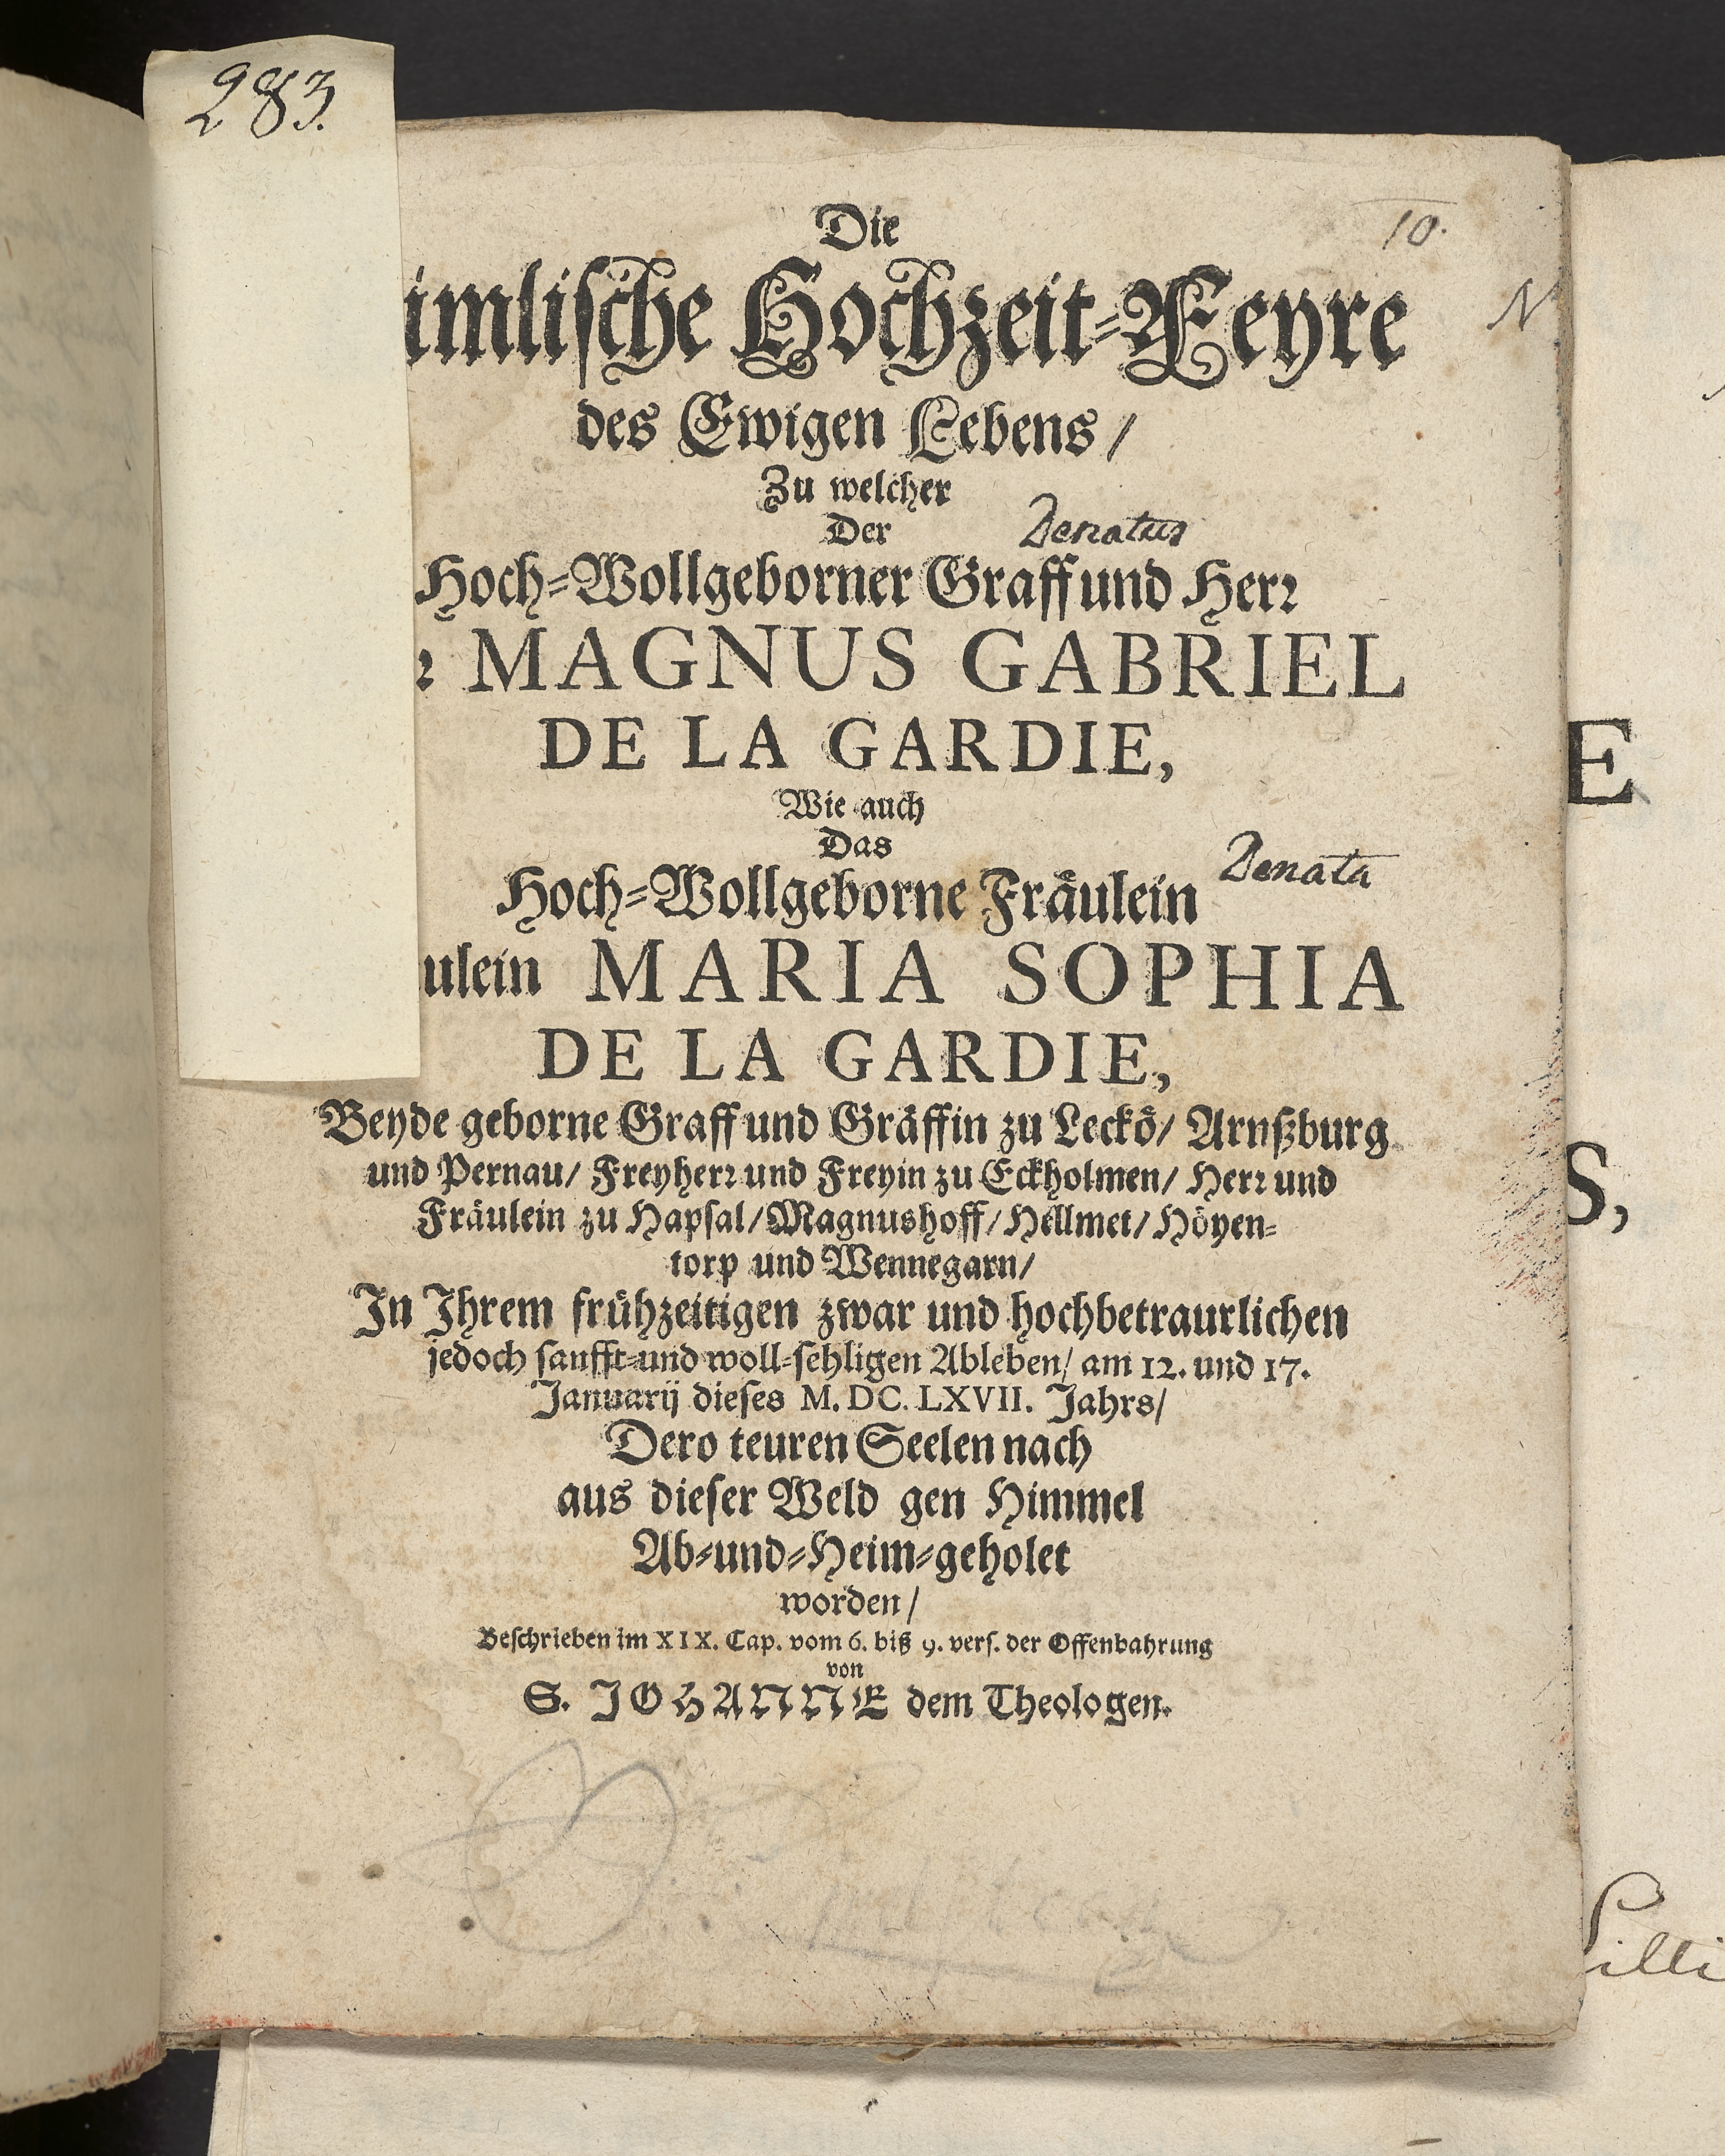 283.
10.
Die
imlische Hochzeit-Feyre
N
des Ewigen Lebens/
Zu welcher
Der
Denatus
Hoch-Wollgeborner Graff und Herr
r MAGNUS GABRIEL
DE LA GARDIE,
E
Wie auch
Das
Denata
Hoch-Wollgeborne Fräulein
ulein MARIA SOPHIA
DE LA GARDIE,
Beyde geborne Graff und Gräffin zu Leckö/ Arnßburg
und Pernau/ Freyherr und Freyin zu Eckholmen/ Herr und
Fräulein zu Hapsal/Magnushoff/Hellmet/Höyen-
S,
torp und Wennegarn/
In Ihrem frühzeitigen zwar und hochbetraurlichen
jedoch sanfft-und woll-sehligen Ableben/ am 12. und 17.
Januarij dieses M. DC. LXVII. Jahrs/
Dero teuren Seelen nach
aus dieser Weld gen Himmel
Ab-und-Heim-geholet
worden/
Beschrieben im XIX. Cap. vom 6. biß 9. vers. der Offenbahrung
von
S. JOHANNE dem Theologen.